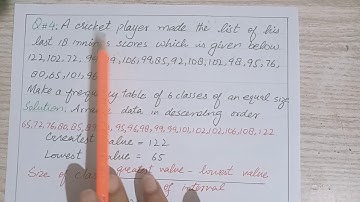 Q#4. A cricket player made the list of his
last 18 innings scores which is given below
122,102,72, 99, 106,99,85,92,108,102,98,95,76,
80,65,101,96
Make a frequency table of 6 classes of an equal size
Solution: Arrange data in descending order
65,72,76,80,85, 91, 95,96,98,99,99,101,102,102,106,108,122
Greatest value = 122
Lowest value = 65
Size of class greatest value - lowest value
of interval